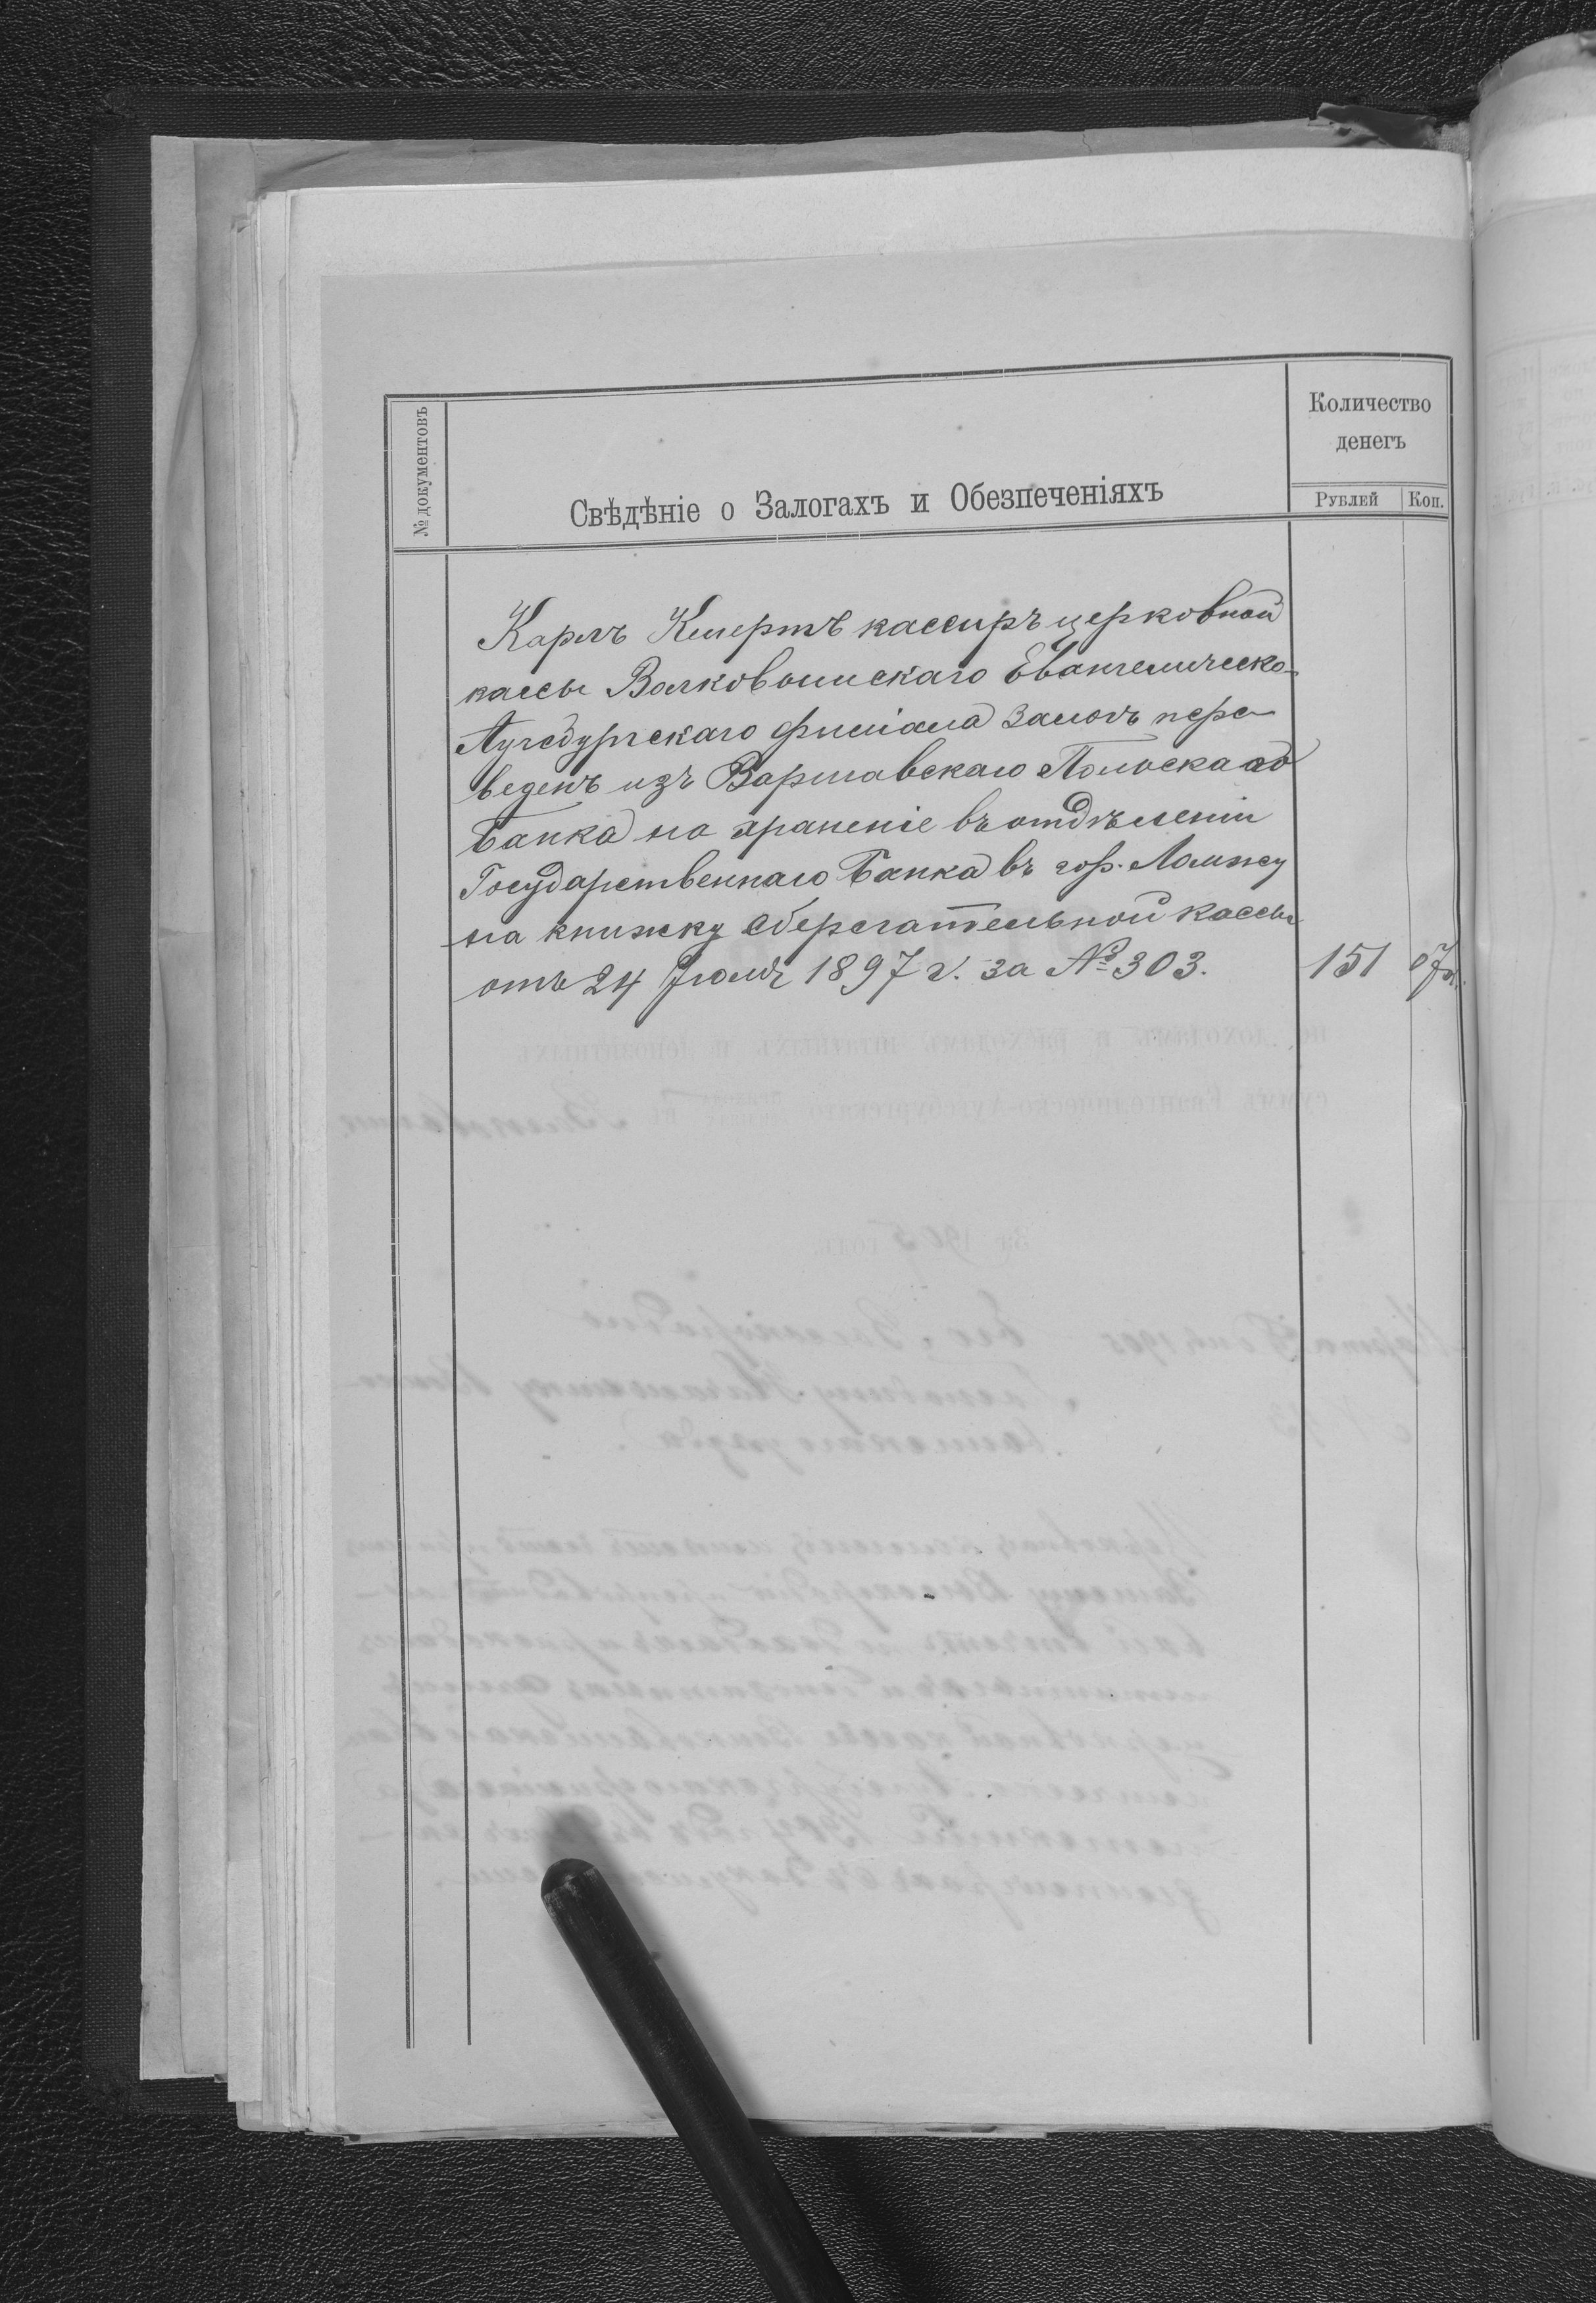 № документовъ
Свѣдѣніе о Залогахъ и Обезпеченіяхъ
Количество
денегъ
Рублей Коп.
Карлъ кассиръ церковной
кассы Волковышскаго Евангелическо-
Аугсбургскаго филіала залогъ пере
веденъ изъ Варшавскаго Польскаго
Банка на храненіе въ отдѣленіи
Государственнаго Банка въ гор. Ломжу
на книжку сберегательной кассы
отъ 24 Іюля 1897 г. за № 303. 151 07к.